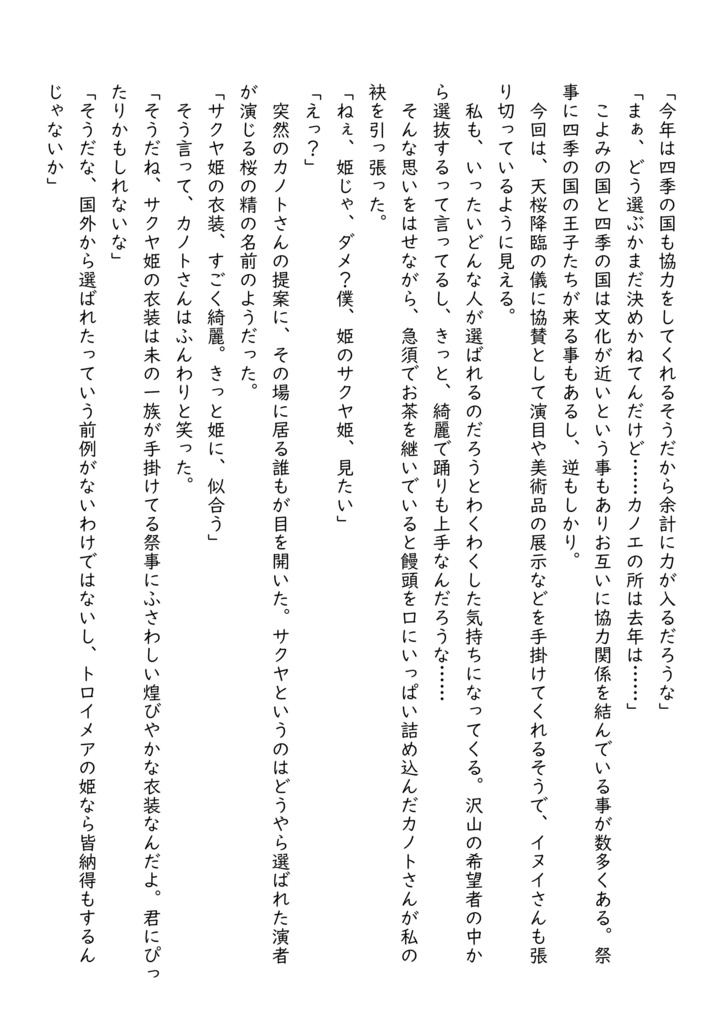 「今年は四季の国も協力をしてくれるそうだから余計に力が入るだろうな」
「まぁ、どう選ぶかまだ決めかねてんだけど……カノエの所は去年は……」
　こよみの国と四季の国は文化が近いという事もありお互いに協力関係を結んでいる事が数多くある。祭
事に四季の国の王子たちが来る事もあるし、逆もしかり。
　今回は、天桜降臨の儀に協賛として演目や美術品の展示などを手掛けてくれるそうで、イヌイさんも張
り切っているように見える。
　私も、いったいどんな人が選ばれるのだろうとわくわくした気持ちになってくる。沢山の希望者の中か
ら選抜するって言ってるし、きっと、綺麗で踊りも上手なんだろうな……
　そんな思いをはせながら、急須でお茶を継いでいると饅頭を口にいっぱい詰め込んだカノトさんが私の
袂を引っ張った。
「ねぇ、姫じゃ、ダメ？僕、姫のサクヤ姫、見たい」
「えっ？」
　突然のカノトさんの提案に、その場に居る誰もが目を開いた。サクヤというのはどうやら選ばれた演者
が演じる桜の精の名前のようだった。
「サクヤ姫の衣装、すごく綺麗。きっと姫に、似合う」
　そう言って、カノトさんはふんわりと笑った。
「そうだね、サクヤ姫の衣装は未の一族が手掛けてる祭事にふさわしい煌びやかな衣装なんだよ。君にぴっ
たりかもしれないな」
「そうだな、国外から選ばれたっていう前例がないわけではないし、トロイメアの姫なら皆納得もするん
じゃないか」